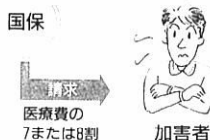 国保
請求
医療費の
7または8割
加害者